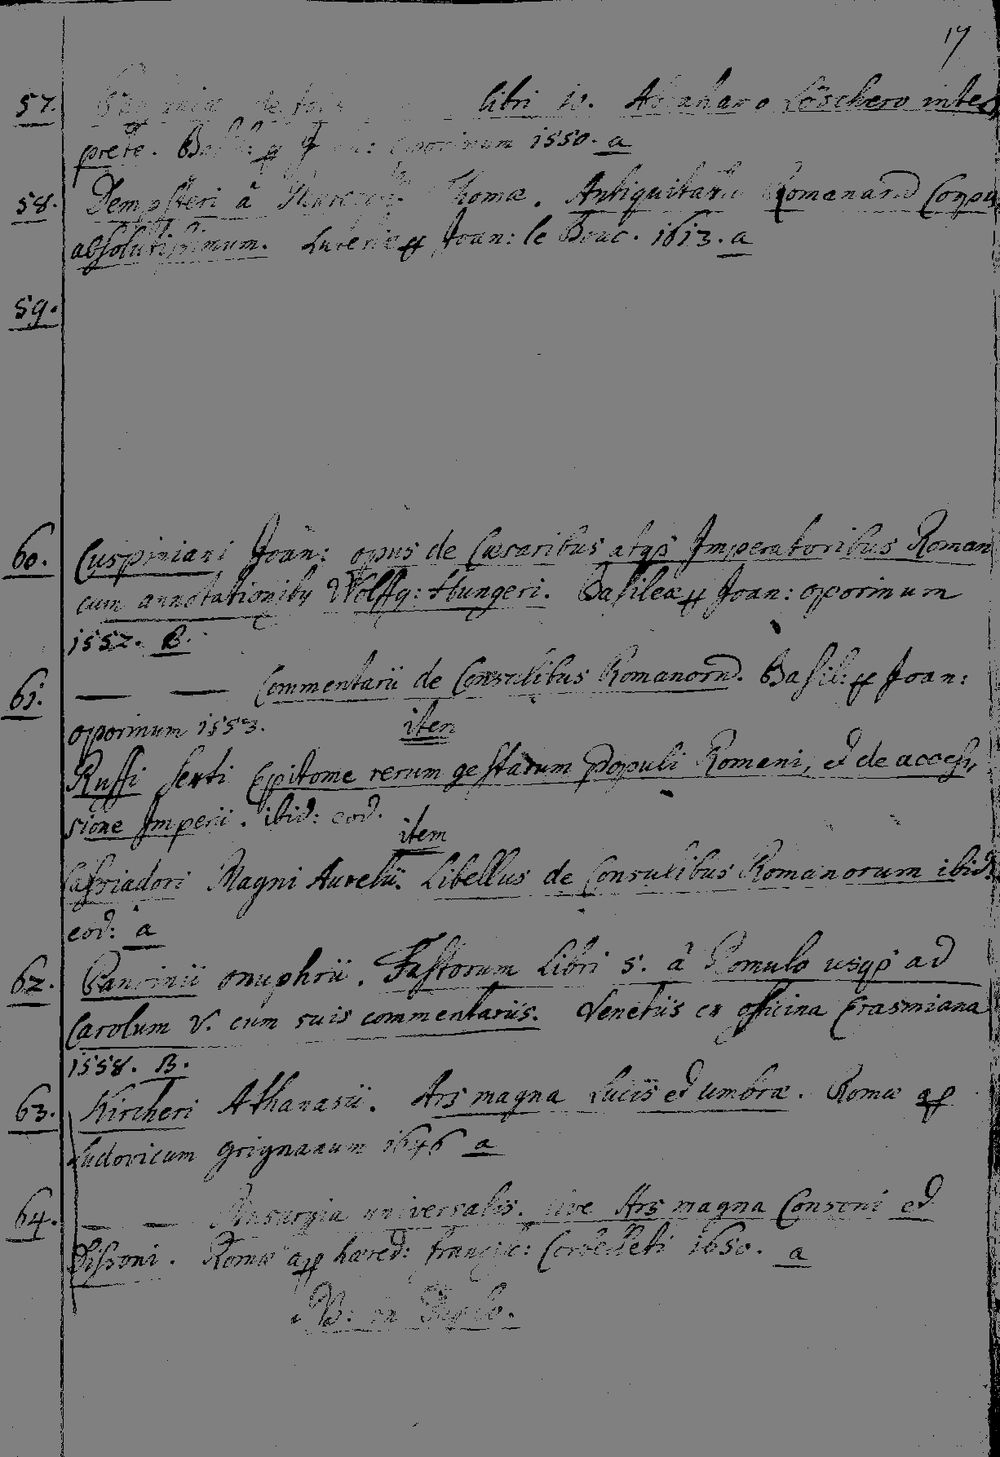 17
57. libri 10. Abrahamo Löschero inter
prete. 1550. a
58. Dempsteri à Thomæ. Antiquitatū Romanarū Corpus
absolutissimum. Luteriæ ap Joan: le Bouc. 1613. a
59.
60. Cuspiniani Joan: opus de Cæsaribus atq3 Imperatoribus Roman
cum annotationibȝ Wolffg: Hungeri. Basileæ ap Joan: oporinum
1552. B.
61. — — Commentarii de Consulibus Romanorū. Basil: ap Joan:
oporinum 1553.
item
Ruffi Sexti Epitome rerum gestarum Populi Romani, et de acces,
sione Imperii. ibid: eod.
item
Cassiadori Magni Aurelii. Libellus de Consulibus Romanorum ibid:
eod: a
62. Panvinii onuphrii. Fastorum Libri 5. à Romulo usq3 ad
Carolum V. cum suis commentariis. Venetiis ex officina Erasmiana
1558. B.
63. Kircheri Athanasii. Ars magna Lucis et umbræ. Romæ ap
Ludovicum grignanum 1646 a
64. — — Musurgia universalis. sive Ars magna Consoni et
Dissoni. Romæ ap hæred: francisc: Corbelleti 1650. a
NB: in Duplo.